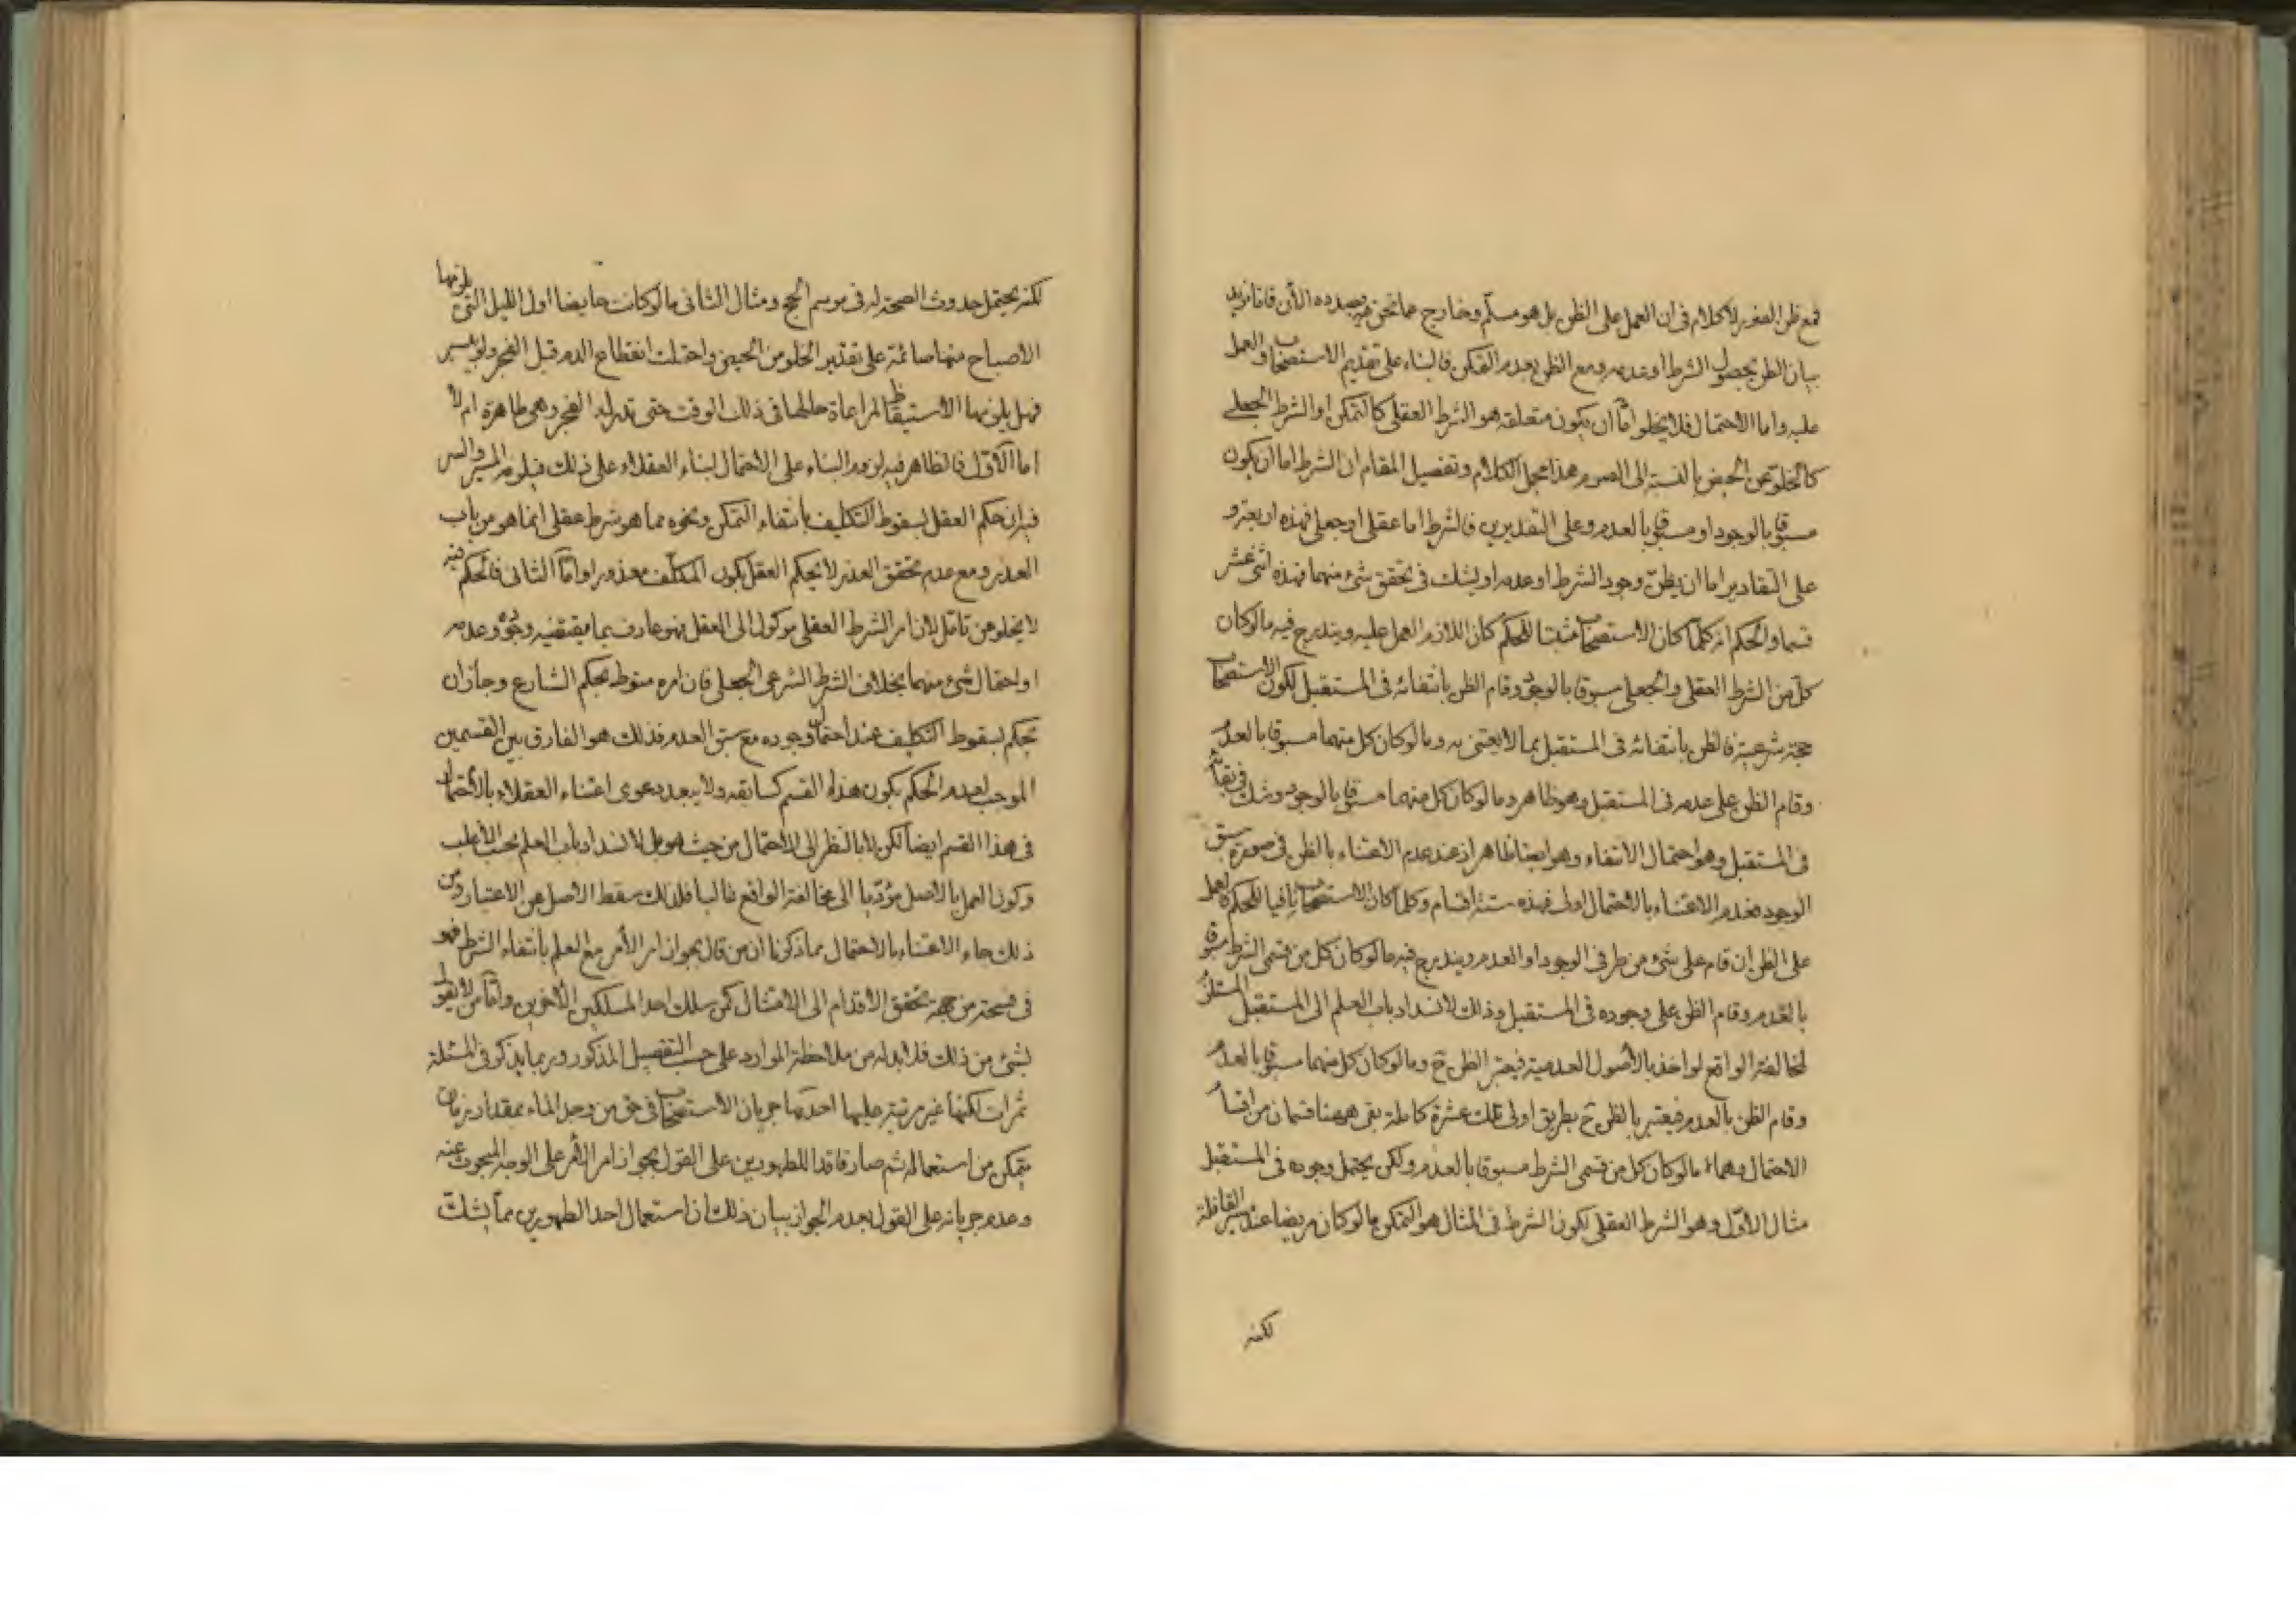 فمع ظن الضرر لا كلام فى ان العمل على الظن بل هو مسلم وخارج عما نحن بصدده الآن فانا نريد
بيان الظن بحصول الشرط او عدمه ومع الظن بعدم التمكن فالبناء على تقديم الاستصحاب والعمل
عليه واما الاحتمال فلا يخلو اما ان يكون متعلقه هو الشرط العقلى كالتمكن او الشرط الجعلى
كالخلو عن الحيض بالنسبة الى الصوم هذا مجمل الكلام وتفصيل المقام ان الشرط اما ان يكون
مسبوقا بالوجود او مسبوقا بالعدم وعلى التقديرين فالشرط اما عقلى او جعلى فهذه اربعة و
على التقادير اما ان يظن وجود الشرط او عدمه او يشك فى تحقق شئ منهما فهذه اثنى عشر
قسما والحكم انه كلما كان الاستصحاب مثبتا للحكم كان اللازم العمل عليه ويندرج فيه ما لو كان
كل من الشرط العقلى والجعلى مسبوقا بالوجود وقام الظن بانتفائه فى المستقبل لكون الاستصحاب
حجة شرعية فالظن بانتفائه فى المستقبل مما لا يعتنى به وما لو كان كل منهما مسبوقا بالعدم
وقام الظن على عدمه فى المستقبل وهو ظاهر وما لو كان كل منهما مسبوقا بالوجود وشك فى بقائه
فى المستقبل وهو احتمال الانتفاء وهو ايضا ظاهر اذ عند عدم الاعتناء بالظن فى صورة سبق
الوجود فعدم الاعتناء بالاحتمال اولى فهذه ستة اقسام وكلما كان الاستصحاب نافيا للحكم فالعمل
على الظن ان قام على شئ من طرفى الوجود او العدم ويندرج فيه ما لو كان كل من قسمى الشرط مسبوقا
بالعدم وقام الظن على وجوده فى المستقبل وذلك لانسداد باب العلم الى المستقبل المستلزم
لمخالفة الواقع لو اخذ بالاصول العدمية فيعتبر الظن ح وما لو كان كل منهما مسبوقا بالعدم
وقام الظن بالعدم فيعتبر بالظن ح بطريق اولى تلك عشرة كاملة بقى ههنا قسمان من اقسام
الاحتمال وهما ما لو كان كل من قسمى الشرط مسبوقا بالعدم ولكن يحتمل وجوده فى المستقبل
مثال الاول وهو الشرط العقلى لكون الشرط فى المثال هو التمكن ما لو كان مريضا عند سير القافلة
لكنه
لكنه يحتمل حدوث الصحة له فى موسم الحج ومثال الثانى ما لو كانت حايضا اول الليل التى يلزمها
الاصباح منها صائمة على تقدير الخلو من الحيض واحتملت انقطاع الدم قبل الفجر ولو بيسير
فهل يلزمها الاستيقاظ لمراعاة حالها فى ذلك الوقت حتى تدرك الفجر وهى طاهرة ام لا
اما الاول فالظاهر فيه لزوم البناء على الاحتمال لبناء العقلاء على ذلك فيلزم المسير والسر
فيه ان حكم العقل بسقوط التكليف بانتفاء التمكن ونحوه مما هو شرط عقلى انما هو من باب
العذر ومع عدم تحقق العذر لا يحكم العقل بكون المكلف معذورا واما الثانى فالحكم فيه
لا يخلو من تامل لان امر الشرط العقلى موكول الى العقل فهو عارف بما يقتضيه وجوده وعدمه
او احتمال شئ منهما بخلاف الشرط الشرعى الجعلى فان امره منوط بحكم الشارع وجاز ان
يحكم بسقوط التكليف عند احتمال وجوده مع سبق العدم فذلك هو الفارق بين القسمين
الموجب لعدم الحكم بكون هذا القسم كسابقه ولا يبعد دعوى اعتناء العقلاء بالاحتمال
فى هذا القسم ايضا لكن لا بالنظر الى الاحتمال من حيث هو بل لانسداد باب العلم بحسب الاغلب
وكون العمل بالاصل مؤديا الى مخالفة الواقع غالبا فلذلك سقط الاصل عن الاعتبار ومن
ذلك جاء الاعتناء بالاحتمال مما ذكرنا ان من قال بجواز امر الآمر مع العلم بانتفاء الشرط فهو
فى فسحة من جهة تحقق الاقدام الى الامتثال كمن سلك احد المسلكين الاخرين واما من لا يقول
بشئ من ذلك فلا بد له من ملاحظة الموارد على حسب التفصيل المذكور وربما يذكر فى المسئلة
ثمرات لكنها غير مرتبة عليها احدها جريان الاستصحاب فى حق من وجد الماء بمقدار زمان
يتمكن من استعماله ثم صار فاقدا للطهورين على القول بجواز امر الآمر على الوجه المبحوث عنه
وعدم جريانه على القول بعدم الجواز بيان ذلك ان استعمال احد الطهورين مما يشك